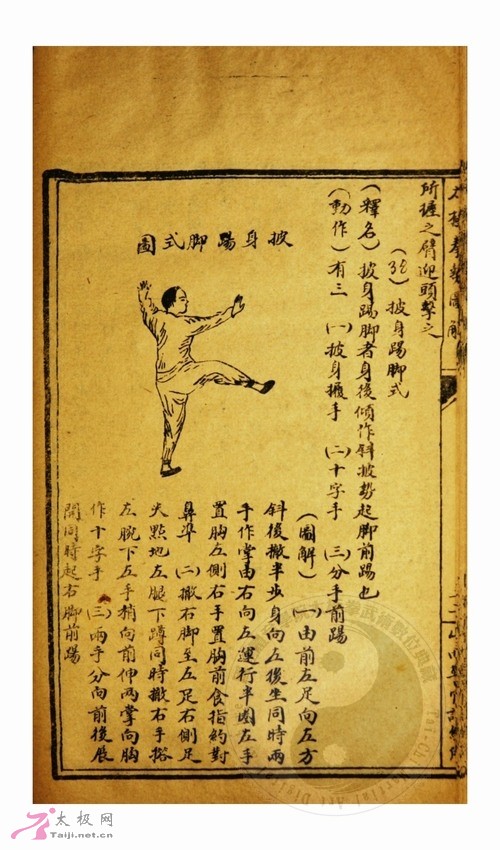 所進之臂迎頭擊之
披身踢脚式
(釋名)披身踢脚者身後傾作斜披勢起脚前踢也
(動作)有三 (一)披身攦手 (二)十字手 (三)分手前踢
披身踢脚式圖
(圖解)(一)由前左足向左方
斜後撤半步身向左後坐同時兩
手作掌由右向左運行半圈左手
置胸左側右手置胸前食指約對
鼻準 (二)撤右脚至左足右側足
尖點地左腿下蹲同時撤右手搭
左腕下左手稍向前伸兩掌向胸
作十字手 (三)兩手分向前後展
開同時起右脚前踢
太极网
Taiji.net.cn